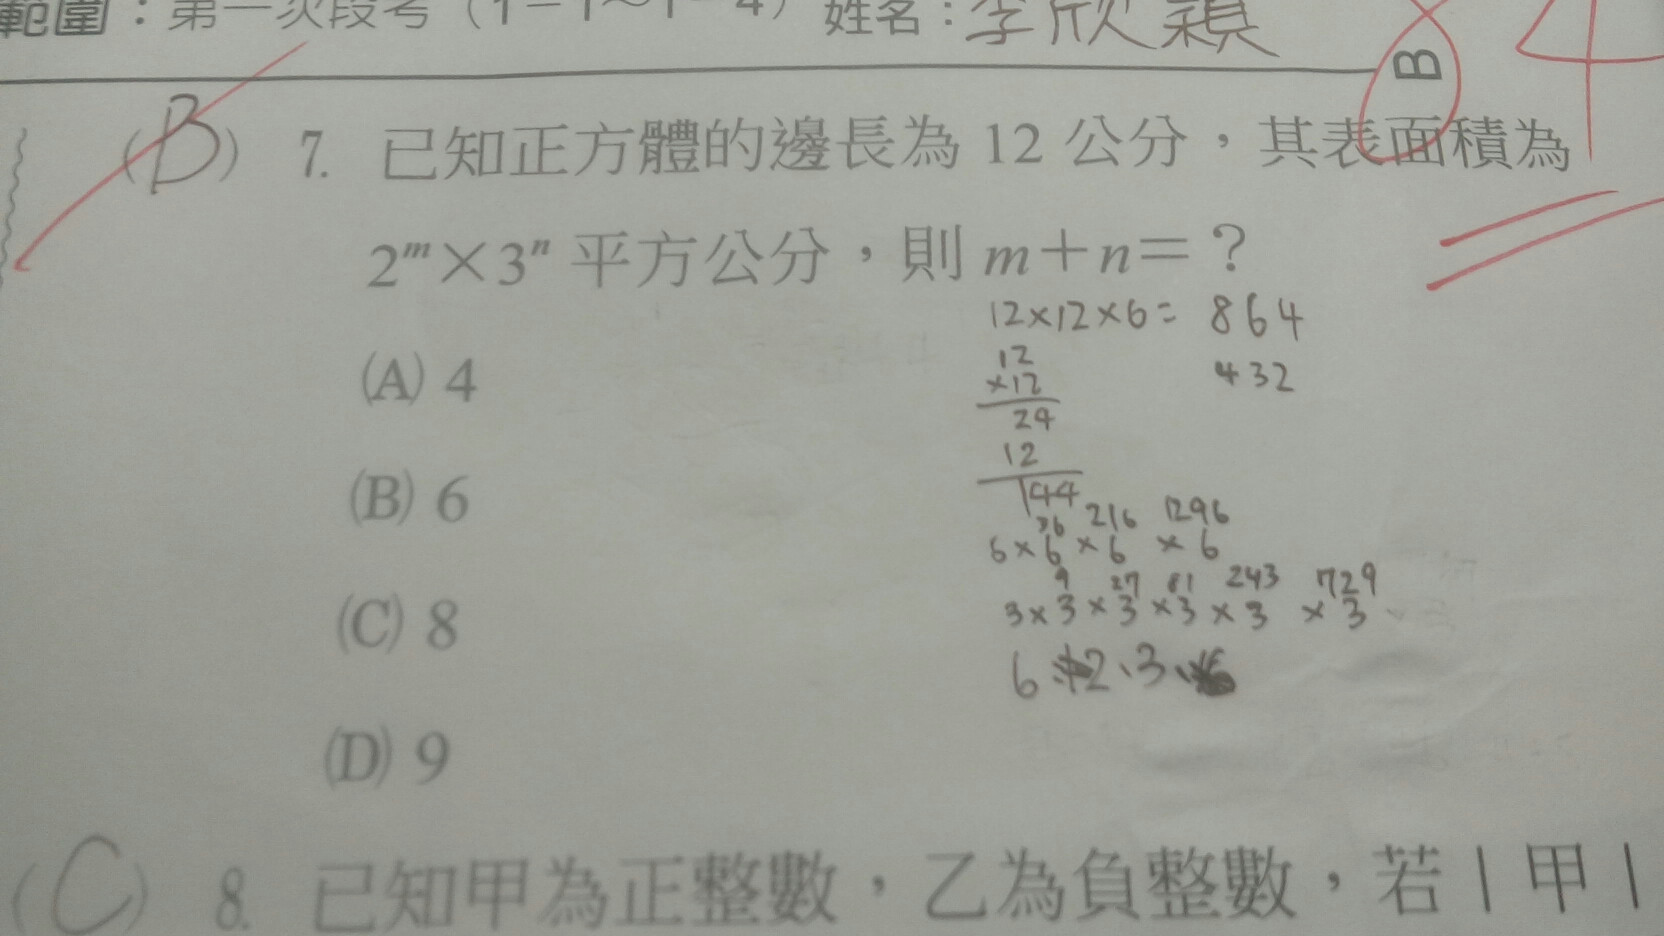 範圍：第一次段考（1－1～1－4）姓名：李欣穎
B 4
(B) 7. 已知正方體的邊長為 12 公分，其表面積為
2ᵐ×3ⁿ 平方公分，則 m＋n＝？
12×12×6= 864
(A) 4
12
×12
432
24
12
144
(B) 6
36 216 1296
6×6×6×6
9 27 81 243 729
3×3×3×3×3×3
(C) 8
6 2、3、
(D) 9
(C) 8. 已知甲為正整數，乙為負整數，若｜甲｜